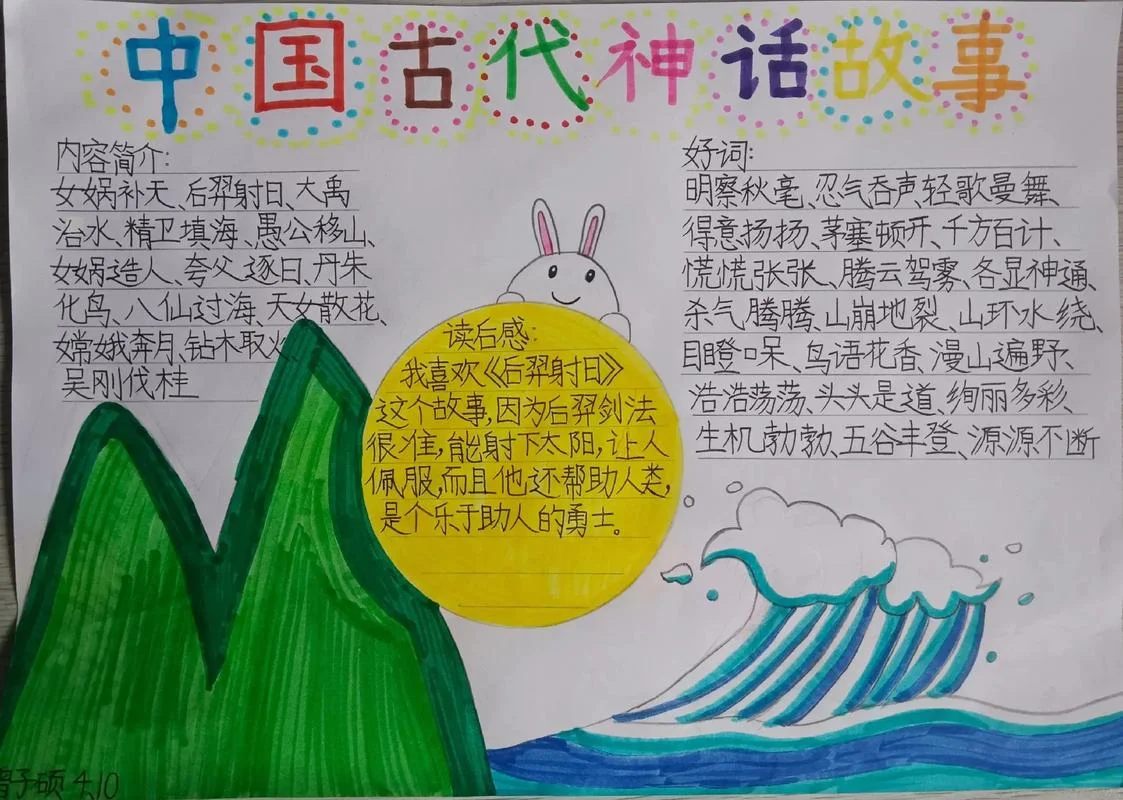 中国古代神话故事
内容简介:
女娲补天、后羿射日、大禹
治水、精卫填海、愚公移山、
女娲造人、夸父逐日、丹朱
化鸟、八仙过海、天女散花、
嫦娥奔月、钻木取火
吴刚伐桂
读后感:
我喜欢《后羿射日》
这个故事,因为后羿剑法
很准,能射下太阳,让人
佩服,而且他还帮助人类,
是个乐于助人的勇士。
好词:
明察秋毫、忍气吞声、轻歌曼舞、
得意扬扬、茅塞顿开、千方百计、
慌慌张张、腾云驾雾、各显神通、
杀气腾腾、山崩地裂、山环水绕、
目瞪口呆、鸟语花香、漫山遍野、
浩浩荡荡、头头是道、绚丽多彩、
生机勃勃、五谷丰登、源源不断
子硕 4.10